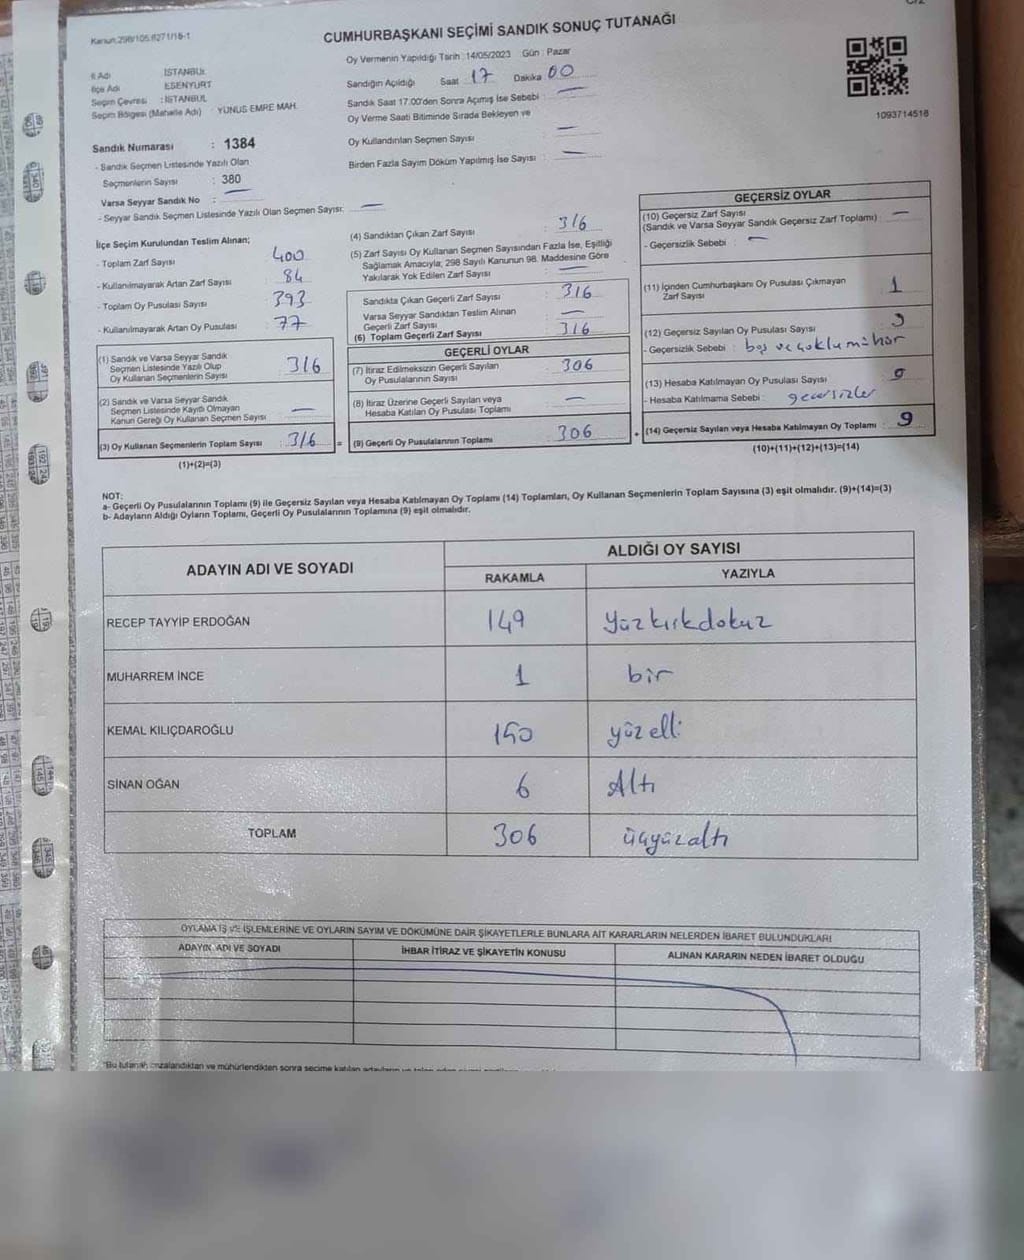 Kanun:298/105.6271/18-1
CUMHURBAŞKANI SEÇİMİ SANDIK SONUÇ TUTANAĞI
İl Adı : İSTANBUL
İlçe Adı : ESENYURT
Seçim Çevresi : İSTANBUL
Seçim Bölgesi (Mahalle Adı) : YUNUS EMRE MAH.
Sandık Numarası : 1384
- Sandık Seçmen Listesinde Yazılı Olan
Seçmenlerin Sayısı : 380
Varsa Seyyar Sandık No : —
- Seyyar Sandık Seçmen Listesinde Yazılı Olan Seçmen Sayısı: —
Oy Vermenin Yapıldığı Tarih : 14/05/2023 Gün : Pazar
Sandığın Açıldığı Saat 17 Dakika 00
Sandık Saat 17.00'den Sonra Açılmış İse Sebebi : —
Oy Verme Saati Bitiminde Sırada Bekleyen ve
Oy Kullandırılan Seçmen Sayısı : —
Birden Fazla Sayım Döküm Yapılmış İse Sayısı : —
1093714518
İlçe Seçim Kurulundan Teslim Alınan;
- Toplam Zarf Sayısı : 400
- Kullanılmayarak Artan Zarf Sayısı : 84
- Toplam Oy Pusulası Sayısı : 393
- Kullanılmayarak Artan Oy Pusulası : 77
(1) Sandık ve Varsa Seyyar Sandık
Seçmen Listesinde Yazılı Olup
Oy Kullanan Seçmenlerin Sayısı : 316
(2) Sandık ve Varsa Seyyar Sandık
Seçmen Listesinde Kayıtlı Olmayan
Kanun Gereği Oy Kullanan Seçmen Sayısı : —
(3) Oy Kullanan Seçmenlerin Toplam Sayısı : 316 =
(1)+(2)=(3)
(4) Sandıktan Çıkan Zarf Sayısı : 316
(5) Zarf Sayısı Oy Kullanan Seçmen Sayısından Fazla İse, Eşitliği
Sağlamak Amacıyla; 298 Sayılı Kanunun 98. Maddesine Göre
Yakılarak Yok Edilen Zarf Sayısı : —
Sandıkta Çıkan Geçerli Zarf Sayısı : 316
Varsa Seyyar Sandıktan Teslim Alınan
Geçerli Zarf Sayısı : —
(6) Toplam Geçerli Zarf Sayısı : 316
GEÇERLİ OYLAR
(7) İtiraz Edilmeksizin Geçerli Sayılan
Oy Pusulalarının Sayısı : 306
(8) İtiraz Üzerine Geçerli Sayılan veya
Hesaba Katılan Oy Pusulası Toplamı : —
(9) Geçerli Oy Pusulalarının Toplamı : 306 +
GEÇERSİZ OYLAR
(10) Geçersiz Zarf Sayısı
(Sandık ve Varsa Seyyar Sandık Geçersiz Zarf Toplamı) : —
- Geçersizlik Sebebi : —
(11) İçinden Cumhurbaşkanı Oy Pusulası Çıkmayan
Zarf Sayısı : 1
(12) Geçersiz Sayılan Oy Pusulası Sayısı : 9
- Geçersizlik Sebebi : boş ve çoklu mühür
(13) Hesaba Katılmayan Oy Pusulası Sayısı : 9
- Hesaba Katılmama Sebebi : geçersizler
(14) Geçersiz Sayılan veya Hesaba Katılmayan Oy Toplamı : 9
(10)+(11)+(12)+(13)=(14)
NOT:
a- Geçerli Oy Pusulalarının Toplamı (9) ile Geçersiz Sayılan veya Hesaba Katılmayan Oy Toplamı (14) Toplamları, Oy Kullanan Seçmenlerin Toplam Sayısına (3) eşit olmalıdır. (9)+(14)=(3)
b- Adayların Aldığı Oyların Toplamı, Geçerli Oy Pusulalarının Toplamına (9) eşit olmalıdır.
ADAYIN ADI VE SOYADI
ALDIĞI OY SAYISI
RAKAMLA YAZIYLA
RECEP TAYYİP ERDOĞAN 149 Yüzkırkdokuz
MUHARREM İNCE 1 bir
KEMAL KILIÇDAROĞLU 150 yüzelli
SİNAN OĞAN 6 Altı
TOPLAM 306 üçyüzaltı
OYLAMA İŞ VE İŞLEMLERİNE VE OYLARIN SAYIM VE DÖKÜMÜNE DAİR ŞİKAYETLERLE BUNLARA AİT KARARLARIN NELERDEN İBARET BULUNDUKLARI
ADAYIN ADI VE SOYADI İHBAR İTİRAZ VE ŞİKAYETİN KONUSU ALINAN KARARIN NEDEN İBARET OLDUĞU
"Bu tutanak imzalandıktan ve mühürlendikten sonra seçime katılan